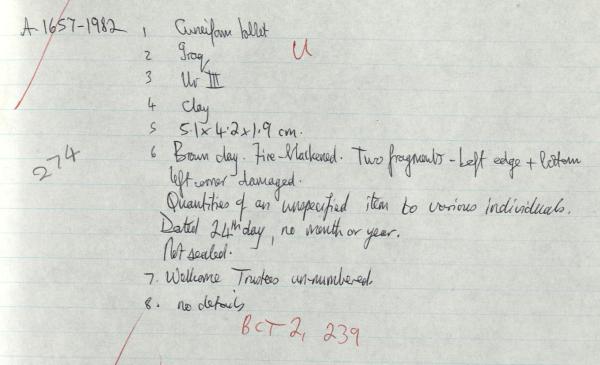 A. 1657-1982 1 Cuneiform tablet
U
2 Iraq
3 Ur III
4 Clay
5 5.1 x 4.2 x 1.9 cm.
274
6 Brown clay. Fire-blackened. Two fragments - Left edge + bottom
left corner damaged.
Quantities of an unspecified item to various individuals.
Dated 24th day, no month or year.
Not sealed.
7. Wellcome Trustees un-numbered.
8. no details
BCT 2, 239